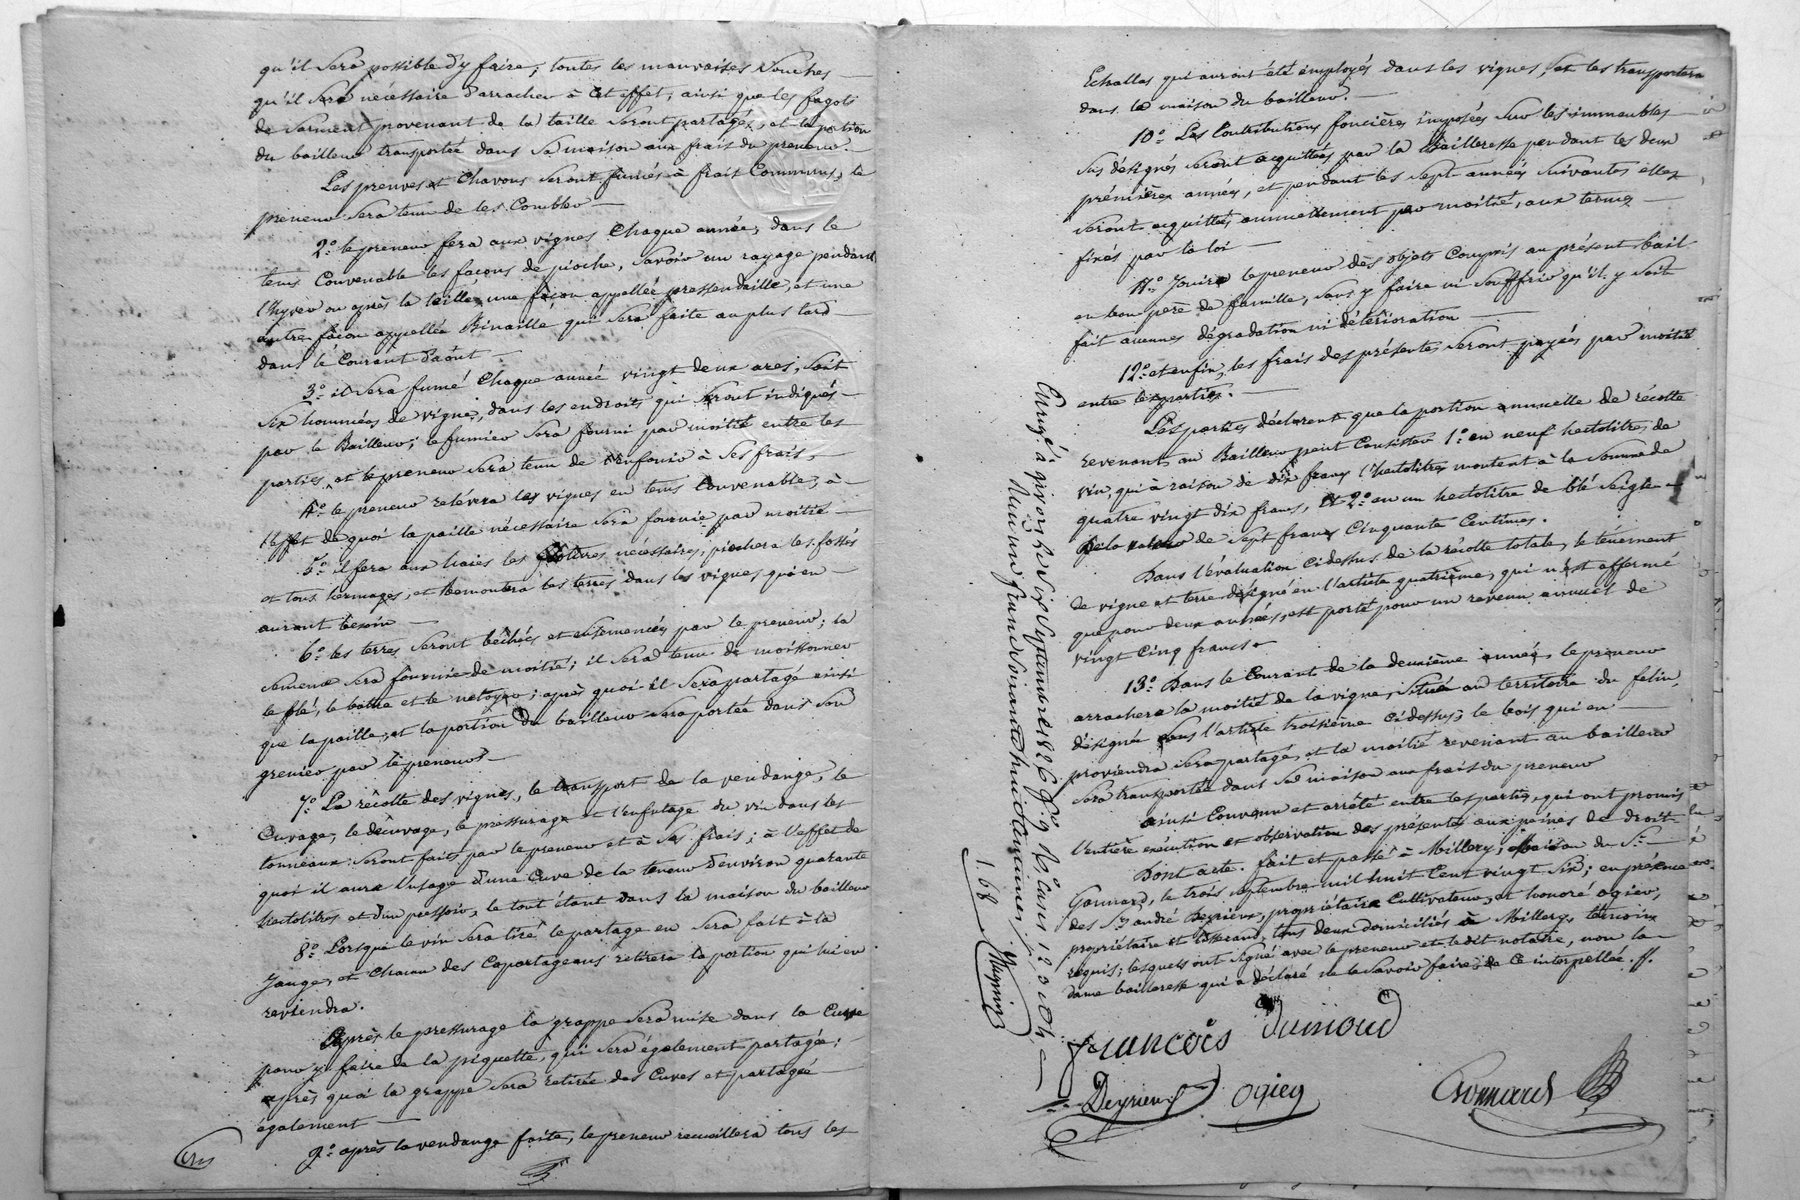 qu'il sera possible d'y faire; toutes les mauvaises souches
qu'il sera nécessaire d'arracher à cet effet, ainsi que les fagots
de sarment provenant de la taille seront partagés, et la portion
du bailleur transportée dans sa maison aux frais du preneur. —
Les preuves et chavons seront fumés à frait communs, le
preneur sera tenu de les combler —
2.° le preneur fera aux vignes chaque année, dans le
tems convenable les façons de pioche, savoir un rayage pendant
l'hyver ou après la taille, une façon appellée , et une
autre façon appellée Binaille qui sera faite au plus tard
dans le courant d'août —
3.° il sera fumé chaque année vingt deux ares, soit
six hommées de vigne, dans les endroits qui seront indiqués —
par le Bailleur; le fumier sera fourni par moitié entre les
parties, et le preneur sera tenu de l'enfouir à ses frais, —
4.° le preneur relévera les vignes en tems convenable, à —
l'effet de quoi la paille nécessaire sera fournie par moitié —
5.° il fera aux haies les clotures nécessaires, piochera les fossés
et tous hermages, et remontera les terres dans les vignes qui en —
auront besoin —
6.° les terres seront bêchées et ensemencées par le preneur; la
semence sera fournie de moitié; il sera tenu de moissonner
le blé, le battre et le netoyer; après quoi il sera partagé ainsi
que la paille, et la portion du bailleur sera portée dans son
grenier par le preneur —
7.° La récolte des vignes, le transport de la vendange, le
cuvage, le décuvage, le pressurage et l'enfutage du vin dans les
tonneaux seront faits par le preneur et à ses frais; à l'effet de
quoi il aura l'usage d'une cuve de la teneur d'environ quarante
hectolitres et d'un pressoir, le tout étant dans la maison du bailleur
8.° Lorsque le vin sera tiré le partage en sera fait à la
jauge, et chacun des copartageans retirera la portion qui lui en
reviendra.
Après le pressurage la grappe sera mise dans la cuve
pour y faire de la piquette, qui sera également partagée;
après quoi la grappe sera retirée des cuves et partagée —
également —
9.° après la vendange faite, le preneur recueillera tous les
Echallas qui auront été employés dans les vignes, et les transportera
dans la maison du bailleur. —
10.° Les Contributions foncières imposées sur les immeubles —
sus désignés seront acquittées par la Bailleresse pendant les deux
prémières années, et pendant les sept années suivantes elles
seront acquittées annuellement par moitié, aux termes —
fixés par la loi —
11.° Jouira le preneur des objets compris au présent bail
en bon père de famille, sans y faire ni souffrir qu'il y soit
fait aucunes dégradation ni détérioration —
12.° et enfin, les frais des présentes seront payées par moitié
entre les parties. —
Les parties déclarent que la portion annuelle de récolte
revenant au Bailleur peut consister 1.° en neuf hectolitres de
vin, qui à raison de dix francs l'hectolitre montent à la somme de
quatre vingt dix francs, et 2.° en un hectolitre de blé seigle —
de la valeur de sept francs cinquante centimes.
Dans l'évaluation cidessus de la récolte totale, le ténement
de vigne et terre désigné en l'article quatrième, qui n'est affermé
que pour deux années, est porté pour un revenu annuel de
vingt cinq francs.
13.° Dans le courant de la deuxième année, le preneur
arrachera la moitié de la vigne située au territoire du felin,
désignée sous l'article troisième cidessus; le bois qui en —
proviendra sera partagé, et la moitié revenant au bailleur
sera transportée dans sa maison aux frais du preneur
ainsi convenu et arrêté entre les parties, qui ont promis
l'entière exécution et observation des présentes aux peines de droit
Dont acte. fait et passé à Millery, maison du S.r —
Gonnard, le trois septembre mil huit cent vingt six; en présence
des S.rs andré Deyrieux, propriétaire Cultivateur, et honoré ogier,
propriétaire et tisserand, tous deux domiciliés à Millery, témoins
requis; lesquels ont signé avec le preneur et le dit notaire, non la —
dame bailleresse qui a déclaré ne le savoir faire, de ce interpellée.
Enregé. à givors le six Septembre 1826 f.° 9
huit centimes
1.68
françois Dumond
Deyrieux
Ogier
Gonnard